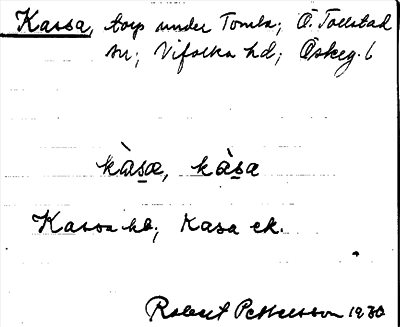 Kassa, torp under Tomla; Ö. Tollstad
sn; Vifolka hd; Öskeg. l
kàsæ, kàsa
Kassa hb; Kasa ek.
Robert Pettersson 1930